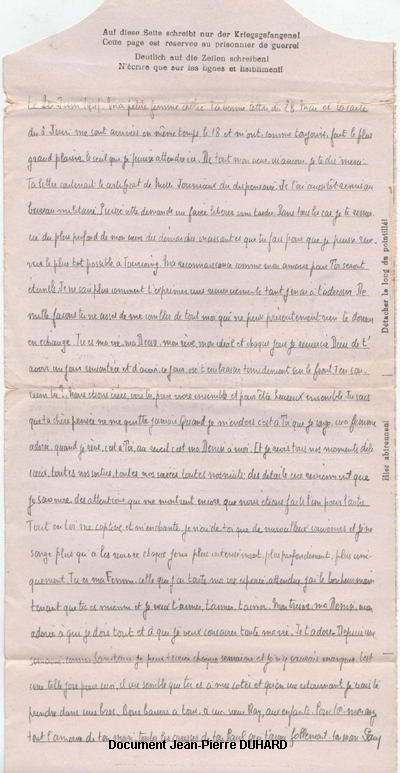 Auf diese Seite schreibt nur der Kriegsgefangene!
Cette page est réservée au prisonnier de guerre!
Deutlich auf die Zeilen schreiben!
N'écrire que sur les lignes et lisiblement!
Le 20 Juin 1941. Ma petite femme Ta bonne lettre du 28 Mai et ta carte
du 2 Juin me sont arrivées en même temps le 18 et m'ont, comme toujours, fait le plus
grand plaisir, le seul que je puisse attendre ici. De tout mon cœur, mamour, je te dis merci.
Ta lettre contenait le certificat de Melle du dispensaire. Je l'ai aussitôt remis au
bureau militaire. Puisse cette demande me faire libérer sans tarder. Dans tous les cas je te remer-
cie du plus profond de mon cœur des démarches incessantes que tu fais pour que je puisse reve-
nir le plus tôt possible à Tourcoing. Ma reconnaissance comme mon amour pour Toi seront
éternels. Je ne sais plus comment t'exprimer mes remerciements tant j'en ai à t'adresser. De
mille façons tu ne cesses de me combler de tout moi qui ne peux présentement rien te donner
en échange. Tu es ma vie, ma Denise, mon rêve, mon idéal et chaque jour je remercie Dieu de t'
avoir un jour rencontrée et d'avoir, ce jour, osé t'embrasser timidement sur le front t'en sou-
viens-tu? Nous étions créés, vois-tu, pour vivre ensemble et pour être heureux ensemble. Tu sais
que ta chère pensée ne me quitte jamais. Quand je m'endors c'est à Toi que je songe, ma femme
adorée, quand je rêve, c'est à Toi, au réveil c'est ma Denise à moi. Et je revis tous nos moments de
cœur, toutes nos sorties, toutes nos soirées, toutes nos nuits; des détails me reviennent que
je savoure, des attentions qui me montrent encore que nous étions faits l'un pour l'autre.
Tout en toi me captive et m'enchante, je n'ai de toi que de merveilleux souvenirs et je ne
songe plus qu'à les revivre chaque jour plus intensément, plus profondément, plus uni-
quement. Tu es ma Femme, celle que j'ai toute ma vie espérée, attendue, j'ai le bonheur main-
tenant que tu es mienne et je veux t'aimer, t'aimer, t'aimer. Mon trésor, ma Denise, mon
adorée à qui je dois tout et à qui je veux consacrer toute ma vie. Je t'adore. Depuis une
semaine, je peux t'écrire chaque semaine et je n'y saurais manquer. C'est
une telle joie pour moi, il me semble que tu es à mes côtés et qu'en me retournant je vais te
prendre dans mes bras. Bons baisers à tous, à mon vieux Ray, aux enfants. Pour toi mon ange
tout l'amour de ton mari, toutes les caresses de ta Paul qui t'aime follement, ton mari Paul
Détacher le long du pointillé!
Hier abtrennen!
Document Jean-Pierre DUHARD